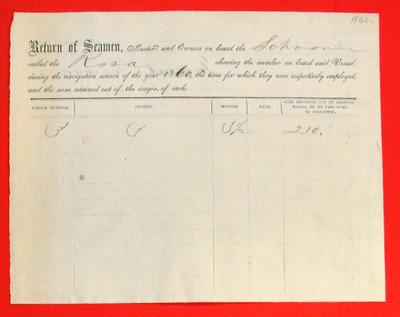 1860.
Return of Seamen, Masters and Owners on board the Schooner
called the Rosa showing the number on board said Vessel
during the navigation season of the year 1860, the time for which they were respectively employed,
and the sum retained out of the wages, of each.
WHOLE NUMBER. NAMES. MONTHS. DAYS. SUMS RETAINED OUT OF SEAMENS WAGES, TO BE PAID OVER TO COLLECTOR.
3 3 3½ 2.10.